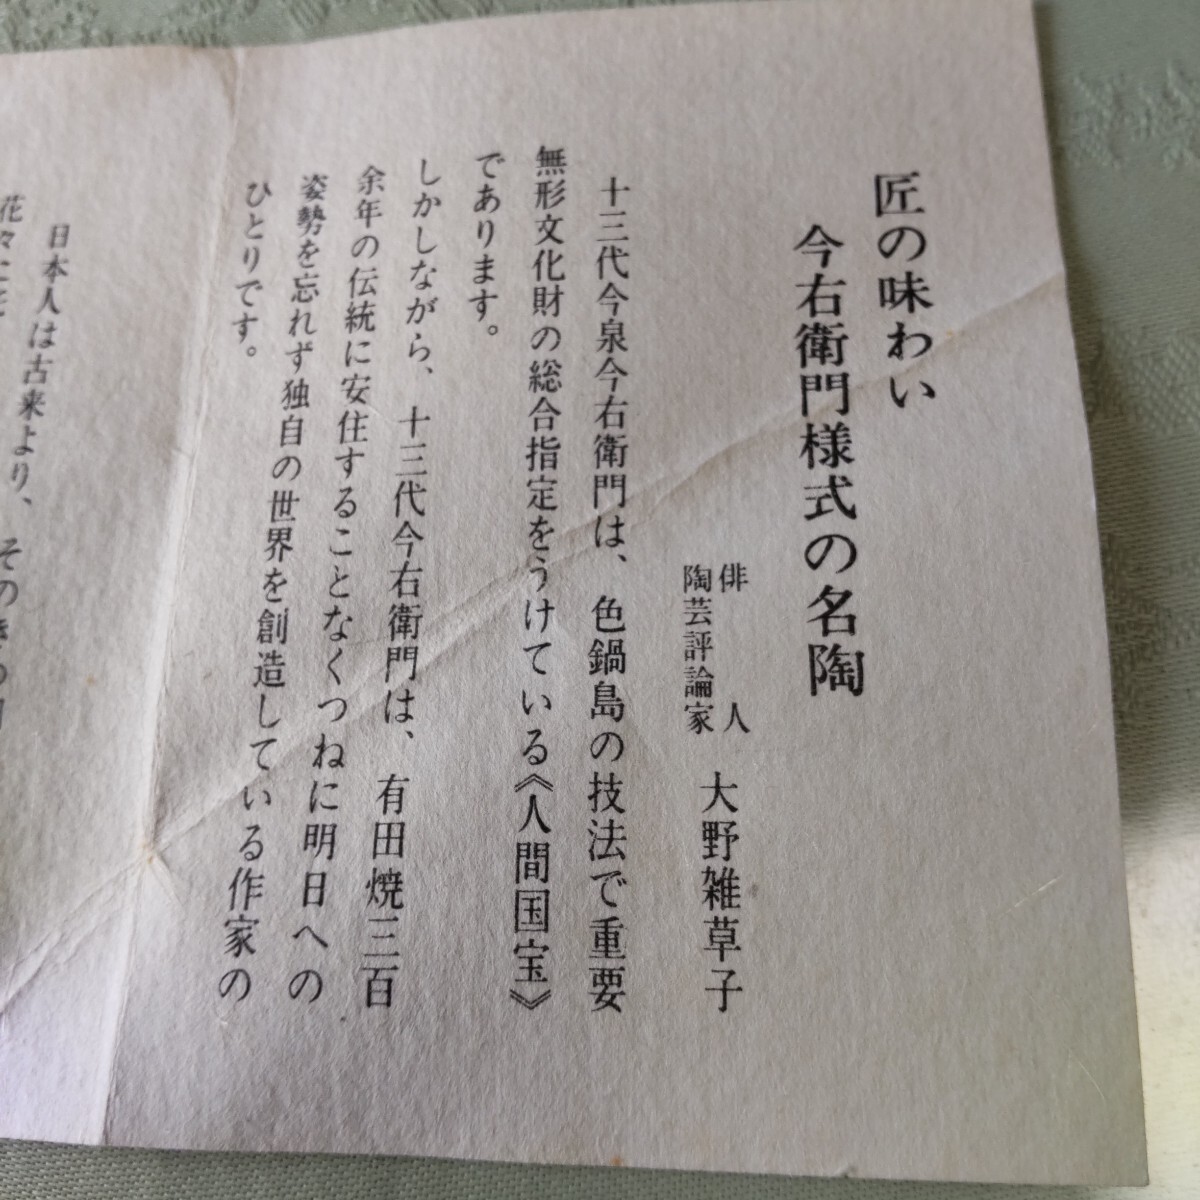 匠の味わい
今右衛門様式の名陶
俳人
陶芸評論家
大野雑草子
十三代今泉今右衛門は、色鍋島の技法で重要
無形文化財の総合指定をうけている《人間国宝》
であります。
しかしながら、十三代今右衛門は、有田焼三百
余年の伝統に安住することなくつねに明日への
姿勢を忘れず独自の世界を創造している作家の
ひとりです。
日本人は古来より、そのき
花々に